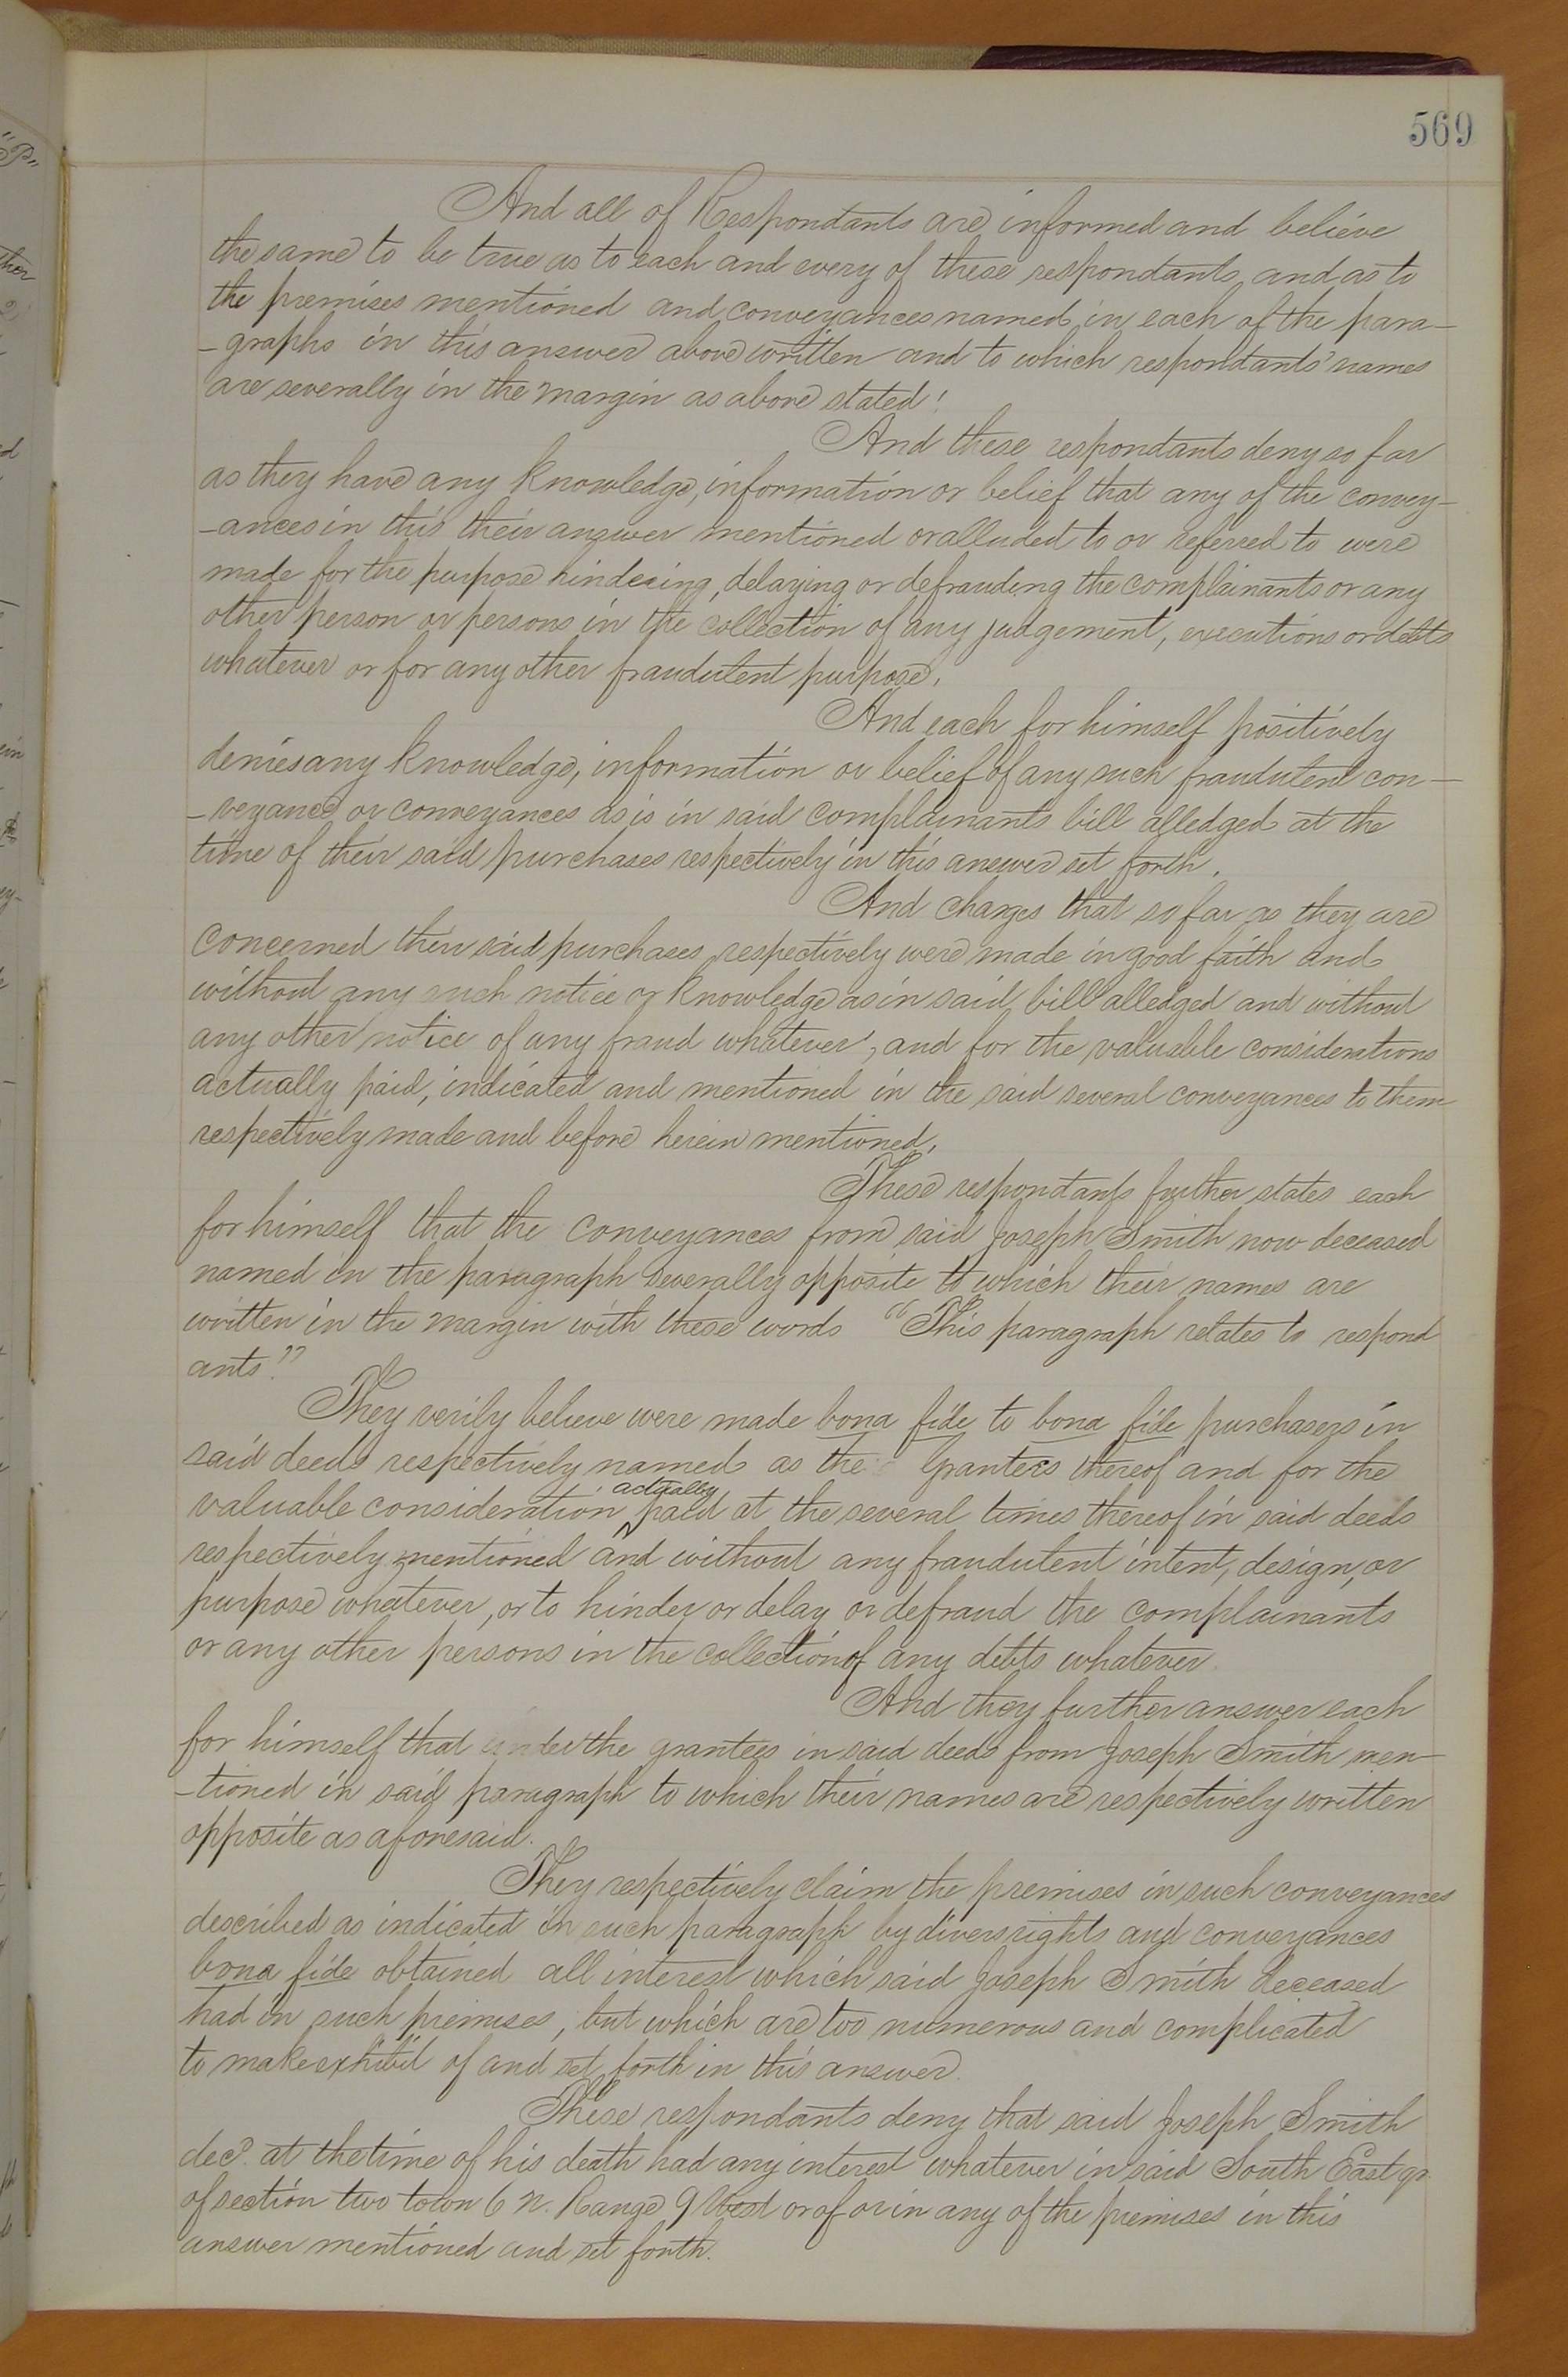 569
And all of Respondants are informed and believe
the same to be true as to each and every of these respondants and as to
the premises mentioned and conveyances named in each of the para-
-graphs in this answer above written and to which respondants' names
are severally in the margin as above stated!
And these respondants deny so far
as they have any knowledge, information or belief that any of the convey-
-ances in this their answer mentioned or alluded to or referred to were
made for the purpose hindering, delaying or defrauding the complainants or any
other person or persons in the collection of any judgement, executions or debts
whatever or for any other fraudulent purpose.
And each for himself positively
denies any knowledge, information or belief of any such fraudulent con-
-veyance or conveyances as is in said complainants bill alledged at the
time of their said purchases respectively in this answer set forth.
And charges that so far as they are
concerned their said purchases respectively were made in good faith and
without any such notice or knowledge as in said bill alledged and without
any other notice of any fraud whatever, and for the valuable considerations
actually paid, indicated and mentioned in the said several conveyances to them
respectively made and before herein mentioned.
These respondants further states each
for himself that the conveyances from said Joseph Smith now deceased
named in the paragraph severally opposite to which their names are
written in the margin with these words "This paragraph relates to respond
ants."
They verily believe were made bona fide to bona fide purchasers in
said deeds respectively named as the Grantees thereof and for the
valuable consideration actually paid at the several times thereof in said deeds
respectively mentioned and without any fraudulent intent, design, or
purpose whatever, or to hinder or delay or defraud the complainants
or any other persons in the collection of any debts whatever.
And they further answer each
for himself that under the grantees in said deeds from Joseph Smith men-
-tioned in said paragraph to which their names are respectively written
opposite as aforesaid.
They respectively claim the premises in such conveyances
described as indicated in such paragraph by divers rights and conveyances
bona fide obtained all interest which said Joseph Smith deceased
had in such premises, but which are too numerous and complicated
to make exhibit of and set forth in this answer.
These respondants deny that said Joseph Smith
decd. at the time of his death had any interest whatever in said South East qr
of section two town 6 N. Range 9 West or of or in any of the premises in this
answer mentioned and set forth.